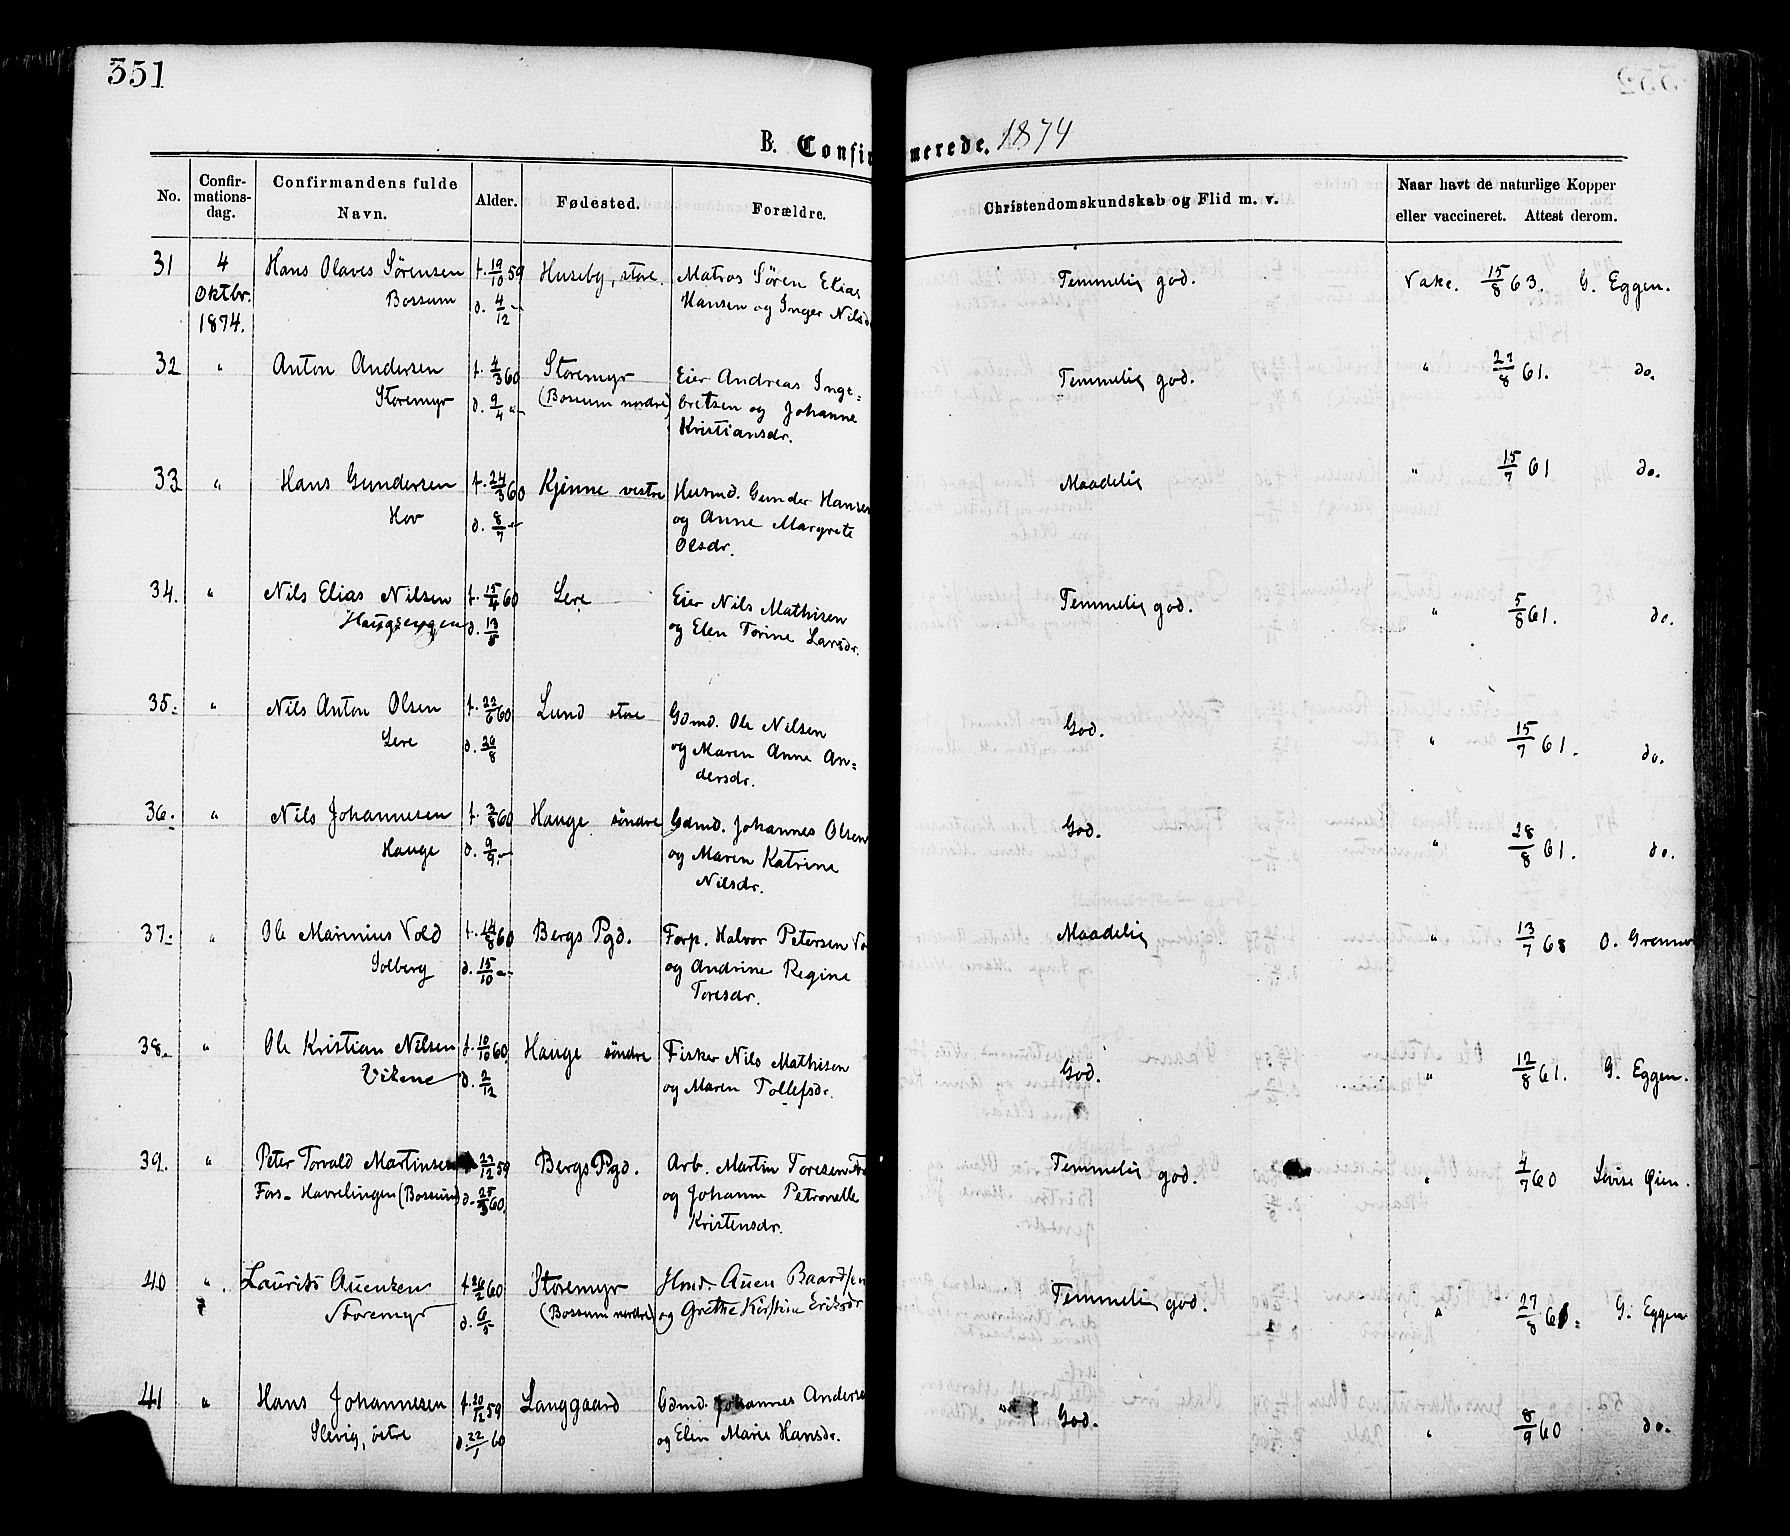 351
B. Confirmerede. 1874
No.
Confir-
mations-
dag.
Confirmandens fulde
Navn.
Alder.
Fødested.
Forældre.
Christendomskundskab og Flid m. v.
Naar havt de naturlige Kopper
eller vaccineret. Attest derom.
31 4 Hans Olaves Sørensen f. 19/10 59 Huseby, store Matros Søren Elias Temmelig god. Vakc. 15/8 63. G. Eggen.
Oktbr. Bossum d. 4/12 - Hansen og Inger Nilsd
1874.
32 " Anton Andersen f. 4/3 60 Storemyr Eier Andreas Inge= Temmelig god. " 27/8 61. do.
Storemyr d. 9/4 - (Bossum nordre) bretsen og Johanne
Kristiansdr.
33 " Hans Gundersen f. 24/3 60 Kjenne vestre Husmd. Gunder Hansen Maadelig " 15/7 61 do.
Hov d. 8/7 - og Anne Margrete
Olsdr.
34. " Nils Elias Nilsen f. 15/4 60 Lere Eier Nils Mathisen Temmelig god. " 5/8 61. do.
Haugsengen d. 13/5 og Elen Torine Larsdr.
35. " Nils Anton Olsen f. 22/6 60 Lund store Gdmd. Ole Nilsen God. " 15/7 61. do.
Lere d. 26/8 og Maren Anne An=
dersdr.
36. " Nils Johannesen f. 3/8 60 Hauge søndre Gdmd. Johannes Olsen God. " 28/8 61. do.
Hauge d. 9/9 - og Maren Katrine
Nilsdr.
37. " Ole Marinius Vold f. 14/8 60 Bergs Pgd. Forp. Halvor Petersen Vo Maadelig " 13/7 68 O.
Solberg d. 15/10 - og Andrine Regine
Toresdr.
38. " Ole Kristian Nilsen f. 10/10 60. Hauge søndre Fisker Nils Mathisen God. " 12/8 61. G. Eggen.
Vikene d. 2/12 og Maren Tollefsdr.
39. " Peter Torvald Martinsen 27/12 59 Bergs Pgd. Arb. Martin Toresen Temmelig god. " 4/7 60 Lovise Øien.
Fos- Havrelingen (Bossum) d. 25/3 60. og Johanne Petronelle
Kristensdr.
40 " Laurits Auensen f. 26/2 60 Storemyr Hmd. Auen Baardsen Temmelig god. " 27/8 61. G. Eggen
Storemyr d. 6/5 (Bossum nordre) og Grethe Kirstine Eriksdr
41 " Hans Johannesen f. 20/12 59 Langgaard Gdmd. Johannes Anderse God. " 8/9 60 do.
Slevig, østre d. 22/1 60 og Elen Marie Hansdr.